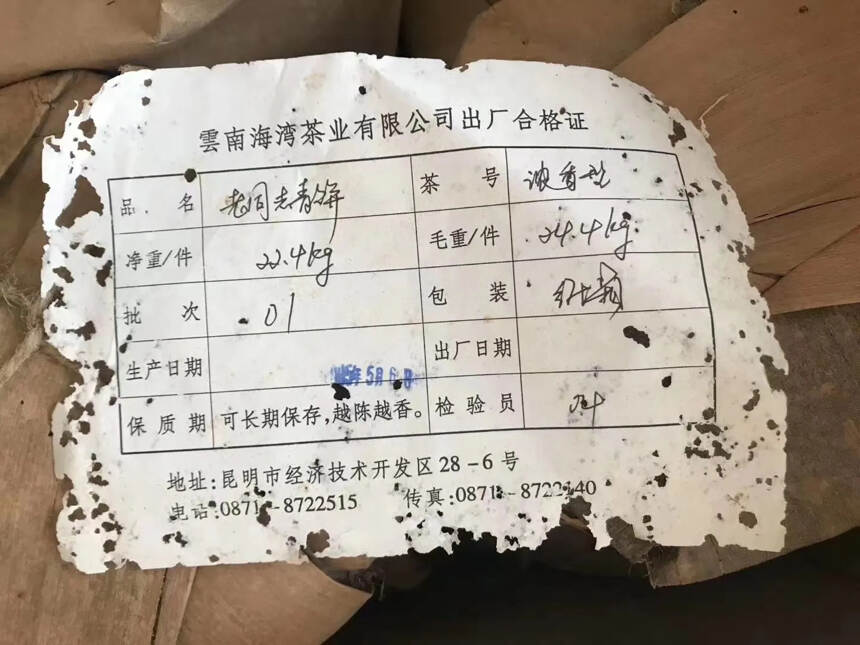 雲南海湾茶业有限公司出厂合格证
品.名 老同志青饼 茶号 浓香型
净重/件 22.4kg 毛重/件 24.4kg
批次 01 包装
生产日期 5月6日 出厂日期
保质期 可长期保存,越陈越香。 检验员
地址:昆明市经济技术开发区28-6号
电话:0871-8722515 传真:0871-8722140